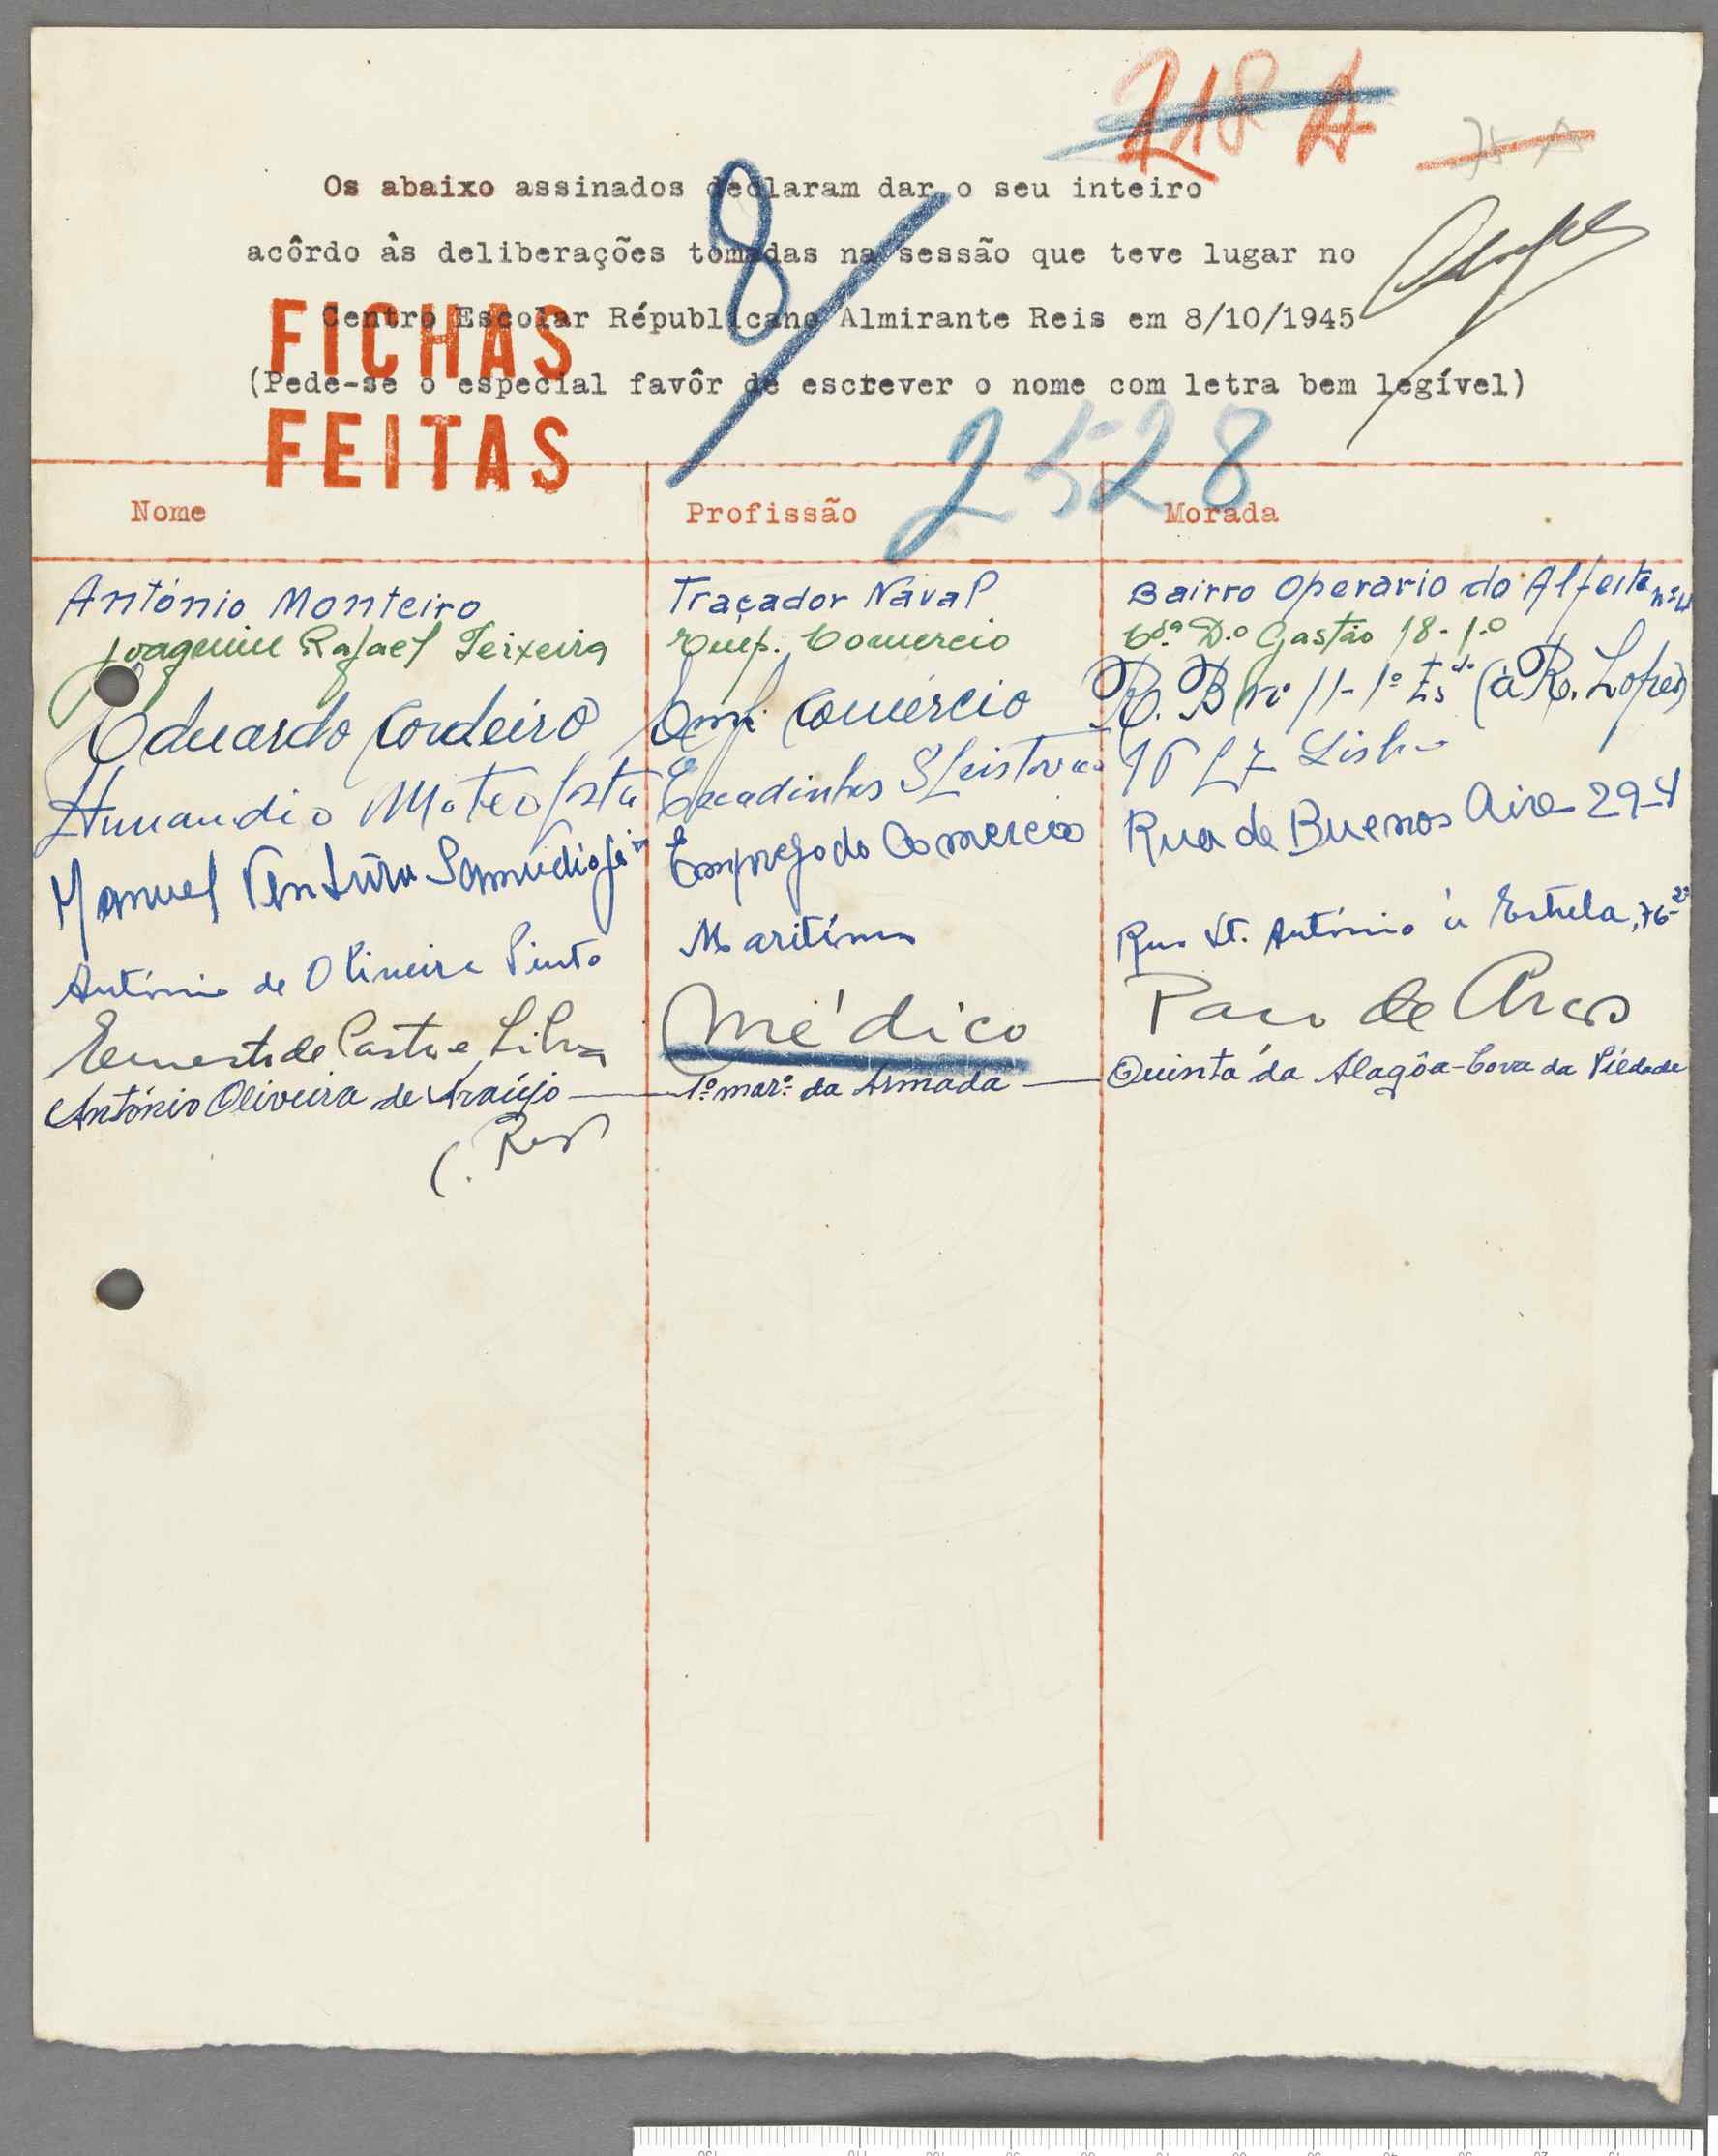 218 A
75 A
Os abaixo assinados declaram dar o seu inteiro
acôrdo às deliberações tomadas na sessão que teve lugar no
Centro Escolar Républicano Almirante Reis em 8/10/1945
(Pede-se o especial favôr de escrever o nome com letra bem legível)
8/
FICHAS
FEITAS
2528
Nome Profissão Morada
António Monteiro Traçador Naval Bairro Operario do Alfeite nº 4
Joaquim Rafael Teixeira Emp. Comercio Cçª D.º Gastão 18-1.º
Eduardo Cordeiro Emp. Comércio R. B nº 11-1º Esdo (à R. Lopes)
Escadinhas S. Cristovão 16 Lisboa
Manuel Ventura Empregado Comercio Rua de Buenos Aires 29-4
António de Oliveira Pinto Maritímo Rua St. António à Estrela, 76-2º
Ernesto de Castro e Silva Médico Paço de Arcos
António Oliveira de Araújo — 1º marº da Armada — Quinta da Alagôa-Cova da Piedade